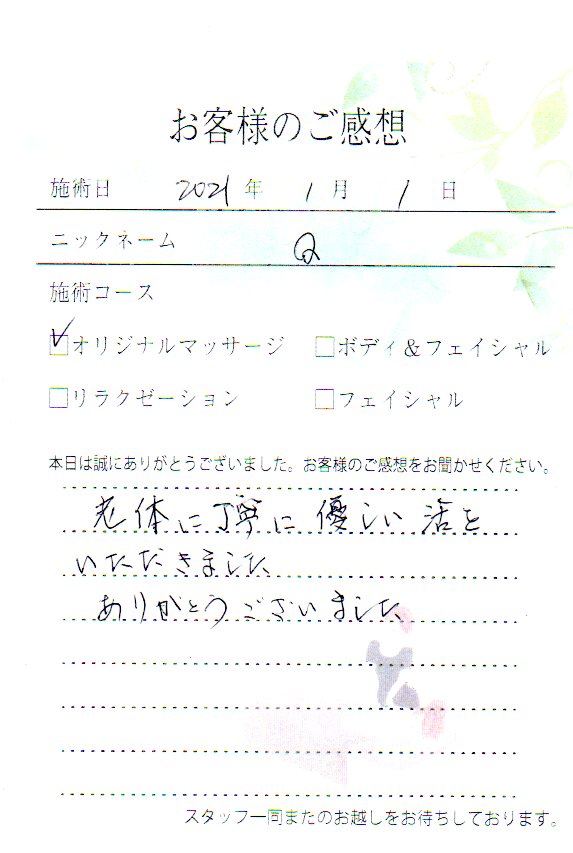 お客様のご感想
施術日 2021年 1月 1日
ニックネーム Q
施術コース
☑オリジナルマッサージ □ボディ&フェイシャル
□リラクゼーション □フェイシャル
本日は誠にありがとうございました。お客様のご感想をお聞かせください。
老体に丁寧に優しい活を
いただきました
ありがとうございました
スタッフ一同またのお越しをお待ちしております。